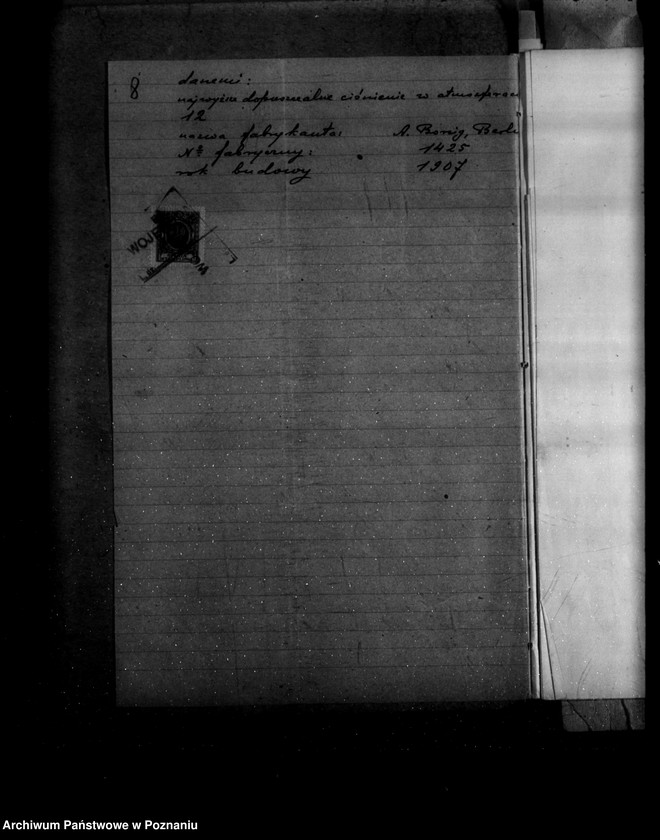 8
danemi:
najwyższe dopuszczalne ciśnienie w atmosferach
12
nazwa fabrykanta: A. Borsig, Berlin
Nº fabryczny: 1425
rok budowy 1907
WOJE
Archiwum Państwowe w Poznaniu